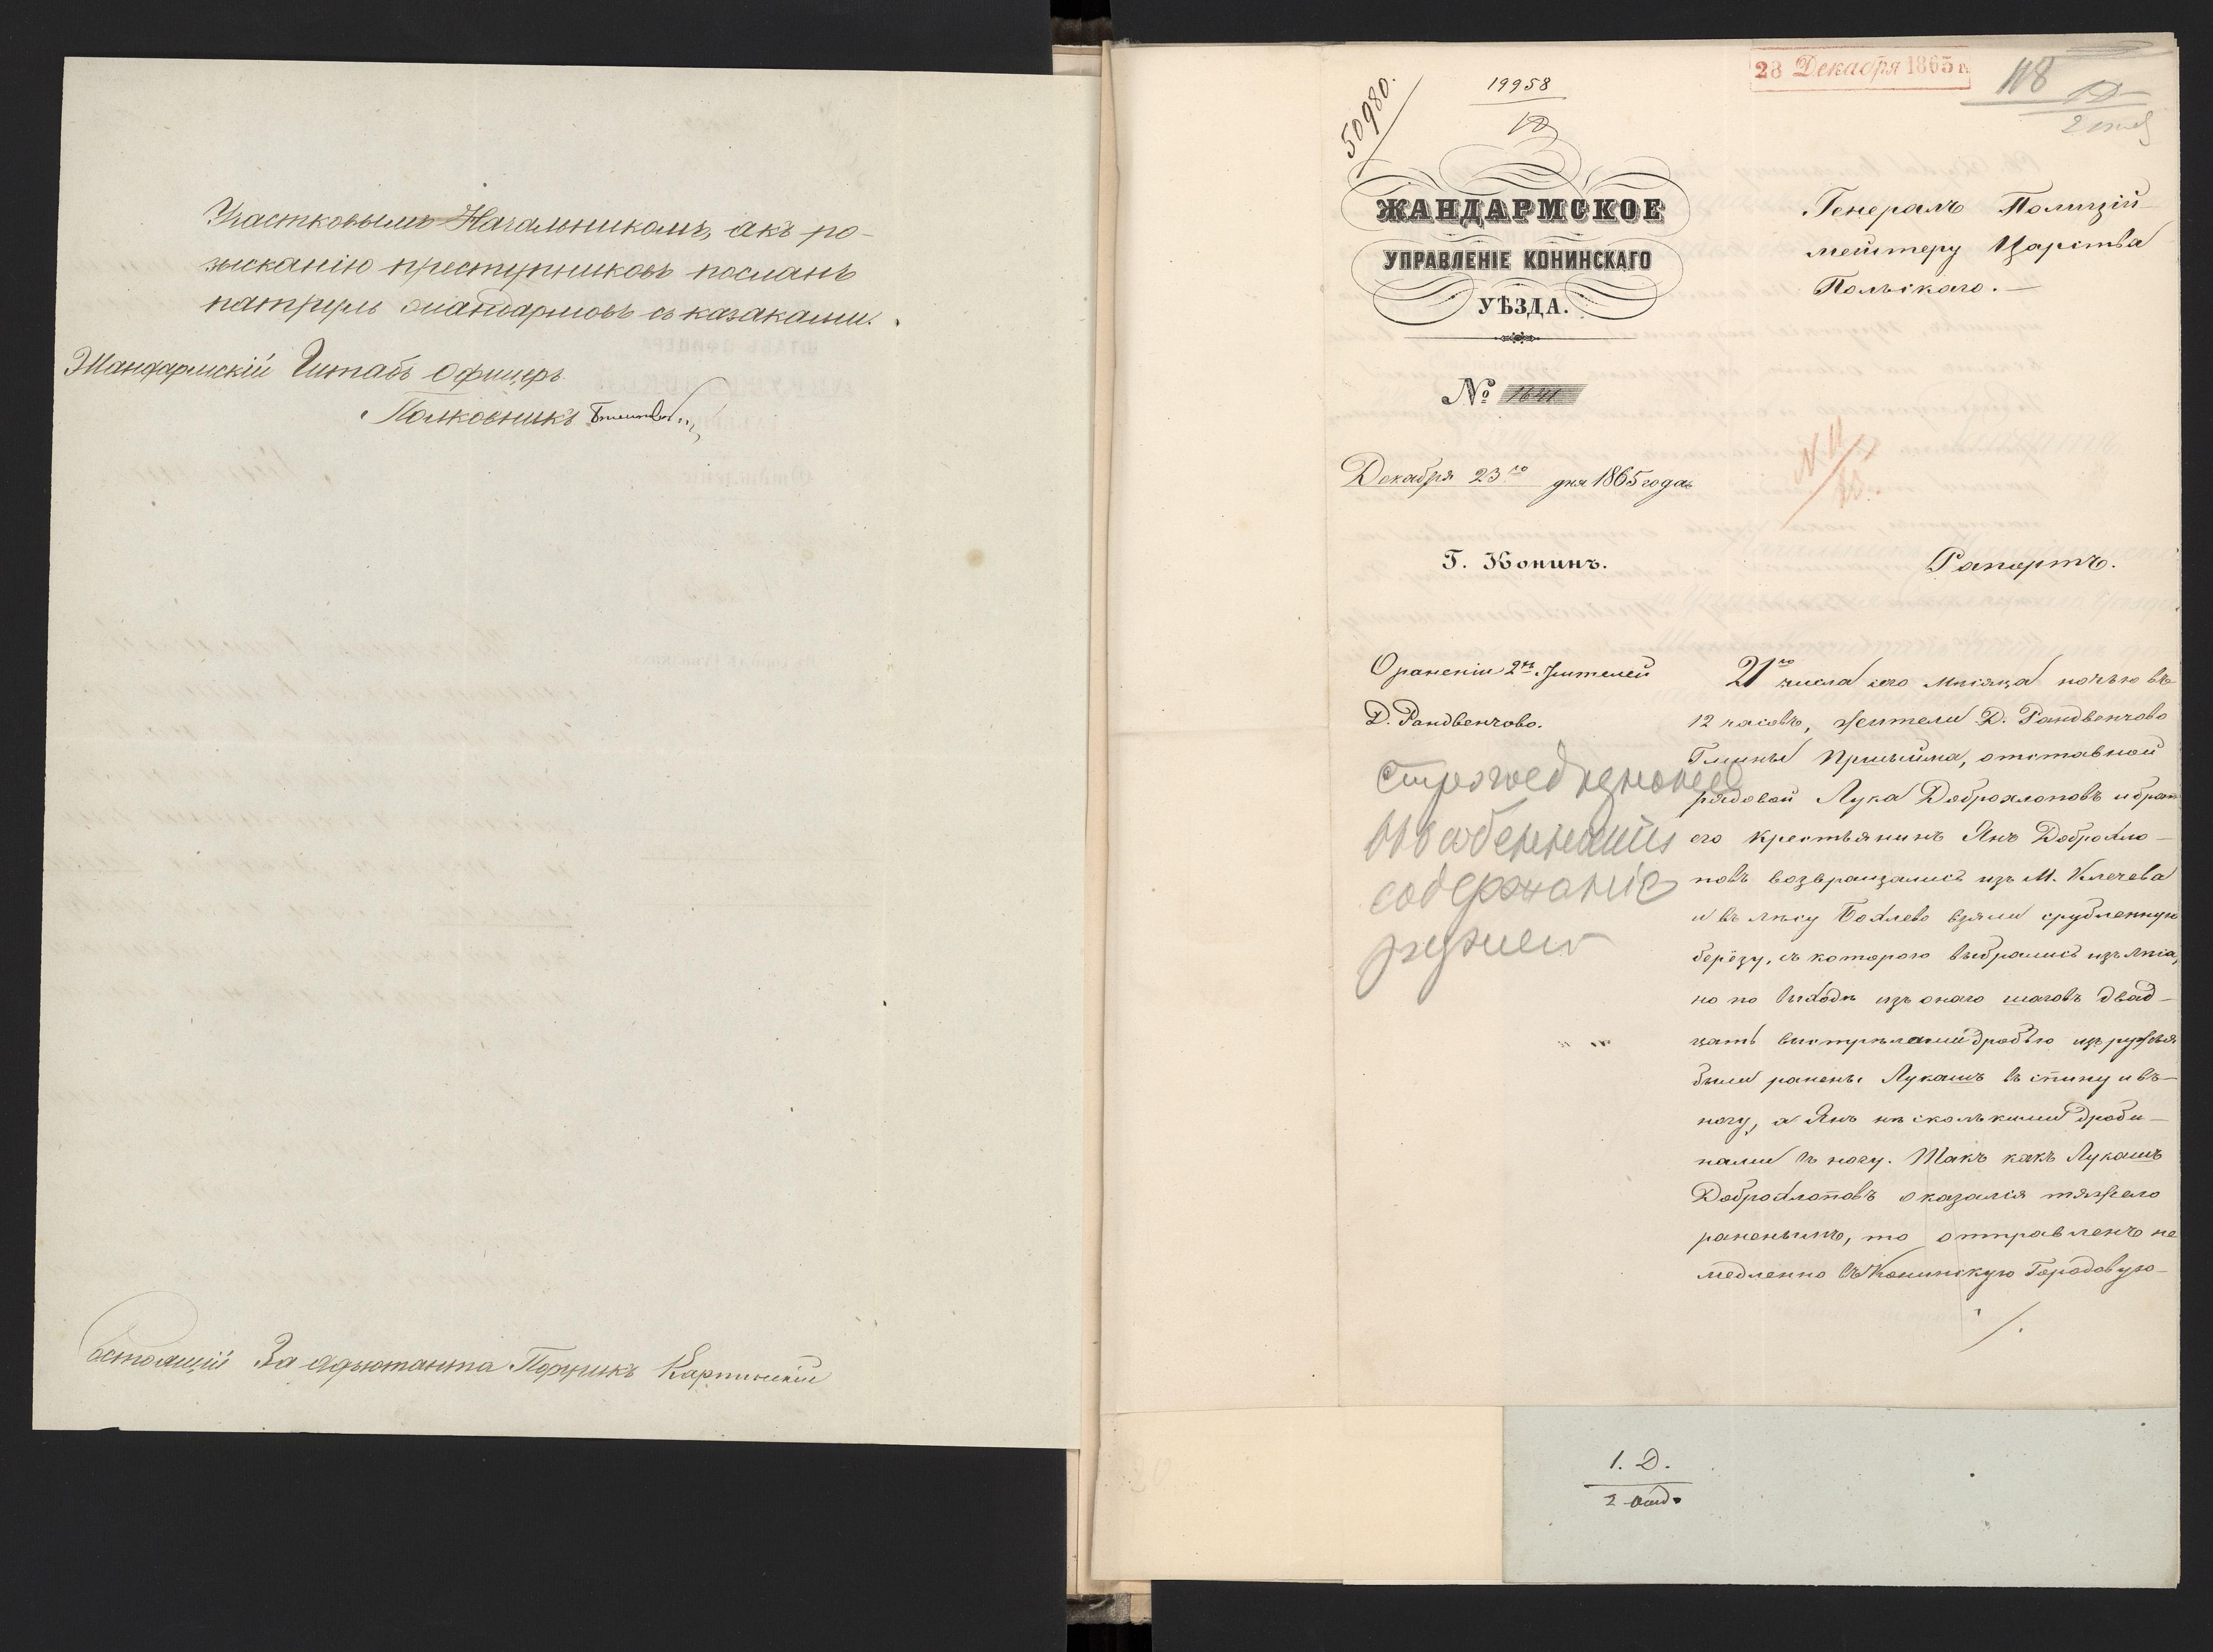 Участковымъ Начальникомъ, а къ ро-
зысканію преступниковъ посланъ
патруль жандармовъ съ казаками.
Жандармскій Штабъ Офицеръ
Полковникъ
Состоящій За адъютанта Поручикъ
28 Декабря 1865 г.
118
50980.
19958
ЖАНДАРМСКОЕ
УПРАВЛЕНІЕ КОНИНСКАГО
УѢЗДА.
№ 1641
Декабря 23го дня 1865 года
Г. Конинъ.
Генералъ Полицій-
мейстеру Царства
Польскаго.—
Рапортъ.
О раненіи 2хъ жителей
Д. Рандвенчово.
содержаніе
21го числа сего мѣсяца ночью въ
12 часовъ, жители Д. Рандвенчово
Гмины отставной
рядовой Лука Доброхлоповъ и братъ
его крестьянинъ Янъ Доброхло-
повъ возвращались изъ М. Клечева
и въ лѣсу Бохлево взяли срубленную
берёзу, съ которою выбрались изъ лѣса,
но по выходѣ изъ онаго шаговъ двад-
цать выстрѣлами дробью изъ ружья
были ранены Лукашъ въ спину и въ
ногу, а Янъ нѣсколькими дроби-
нами въ ногу. Такъ какъ Лукашъ
Доброхлоповъ оказался тяжело
раненымъ, то отправленъ не
медленно въ Конинскую Городовую
./.
1. Д.
2 отд.